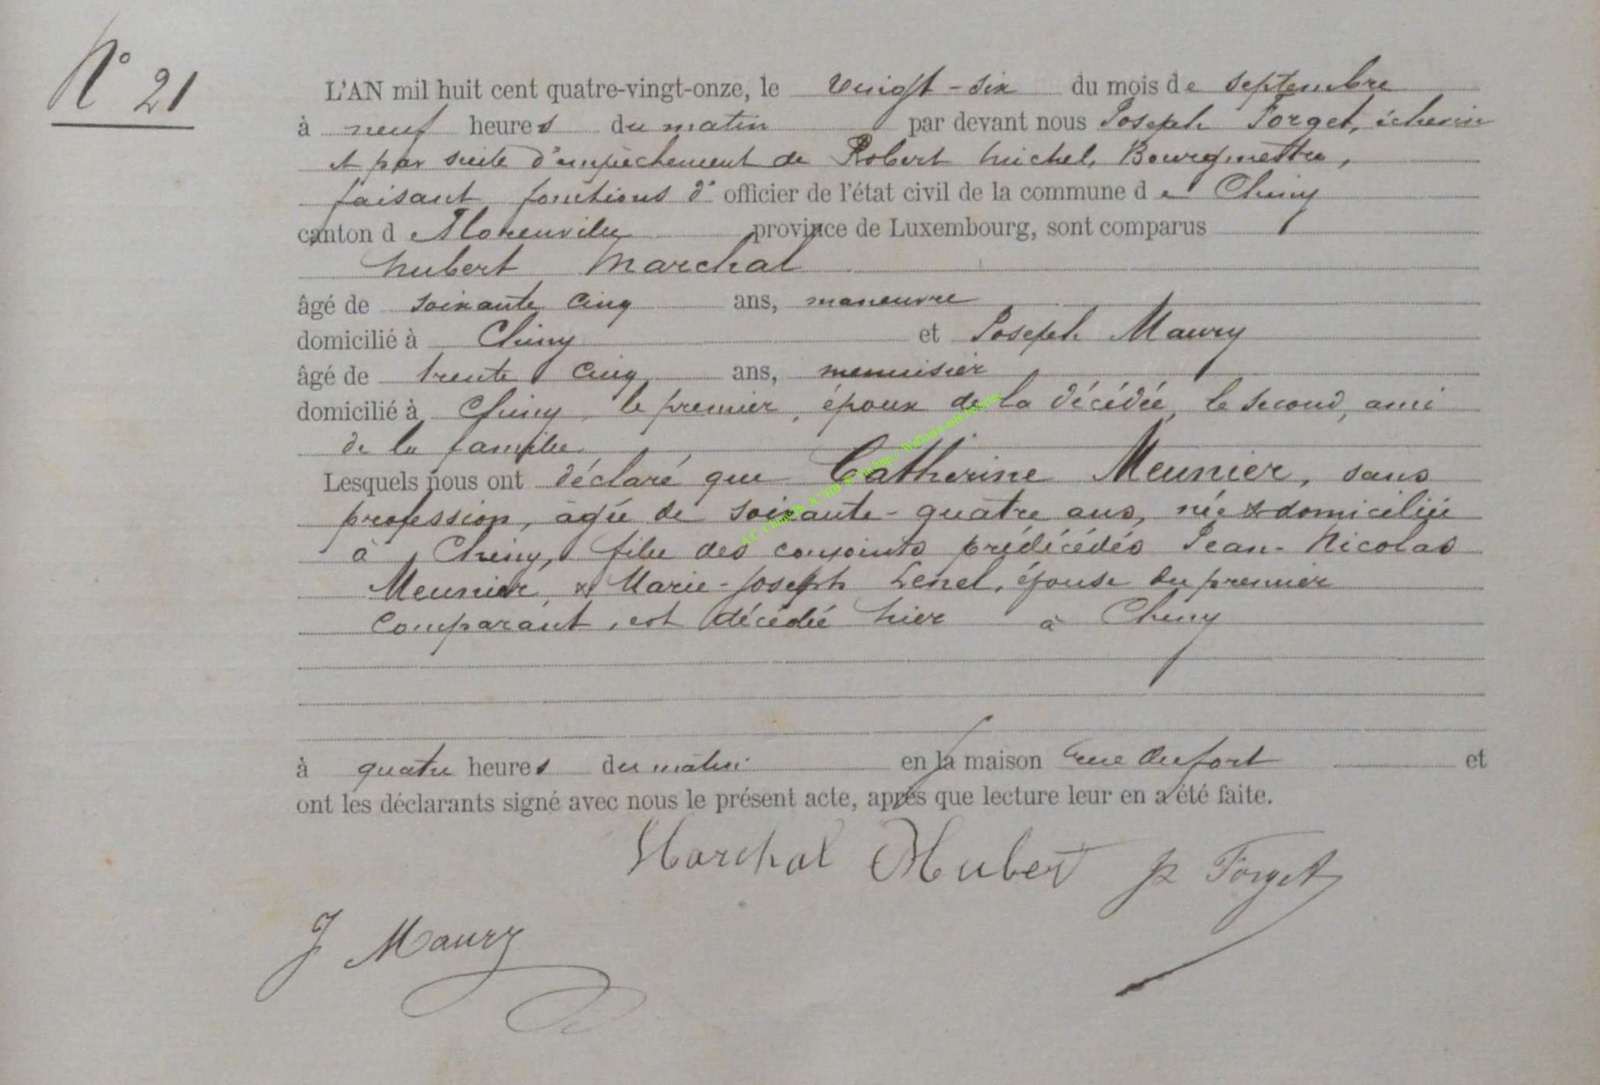 N° 21
L'AN mil huit cent quatre-vingt-onze, le vingt-six du mois de septembre
à neuf heures du matin par devant nous Joseph Forget, échevin
et par suite d'empêchement de Robert Michel, Bourgmestre,
faisant fonctions d' officier de l'état civil de la commune de Chiny
canton d Florenville province de Luxembourg, sont comparus
Hubert Marchal
âgé de soixante cinq ans, manœuvre
domicilié à Chiny et Joseph Maury
âgé de trente cinq ans, menuisier
domicilié à Chiny, le premier, époux de la décédée, le second, ami
de la famille
Lesquels nous ont déclaré que Catherine Meunier, sans
profession, âgée de soixante-quatre ans, née & domiciliée
à Chiny, fille des conjoints prédécédés Jean-Nicolas
Meunier, & Marie-Joseph Lenel, épouse du premier
comparant, est décédée hier à Chiny
à quatre heures du matin en la maison rue du fort et
ont les déclarants signé avec nous le présent acte, après que lecture leur en a été faite.
Marchal Hubert Jh Forget
J Maury